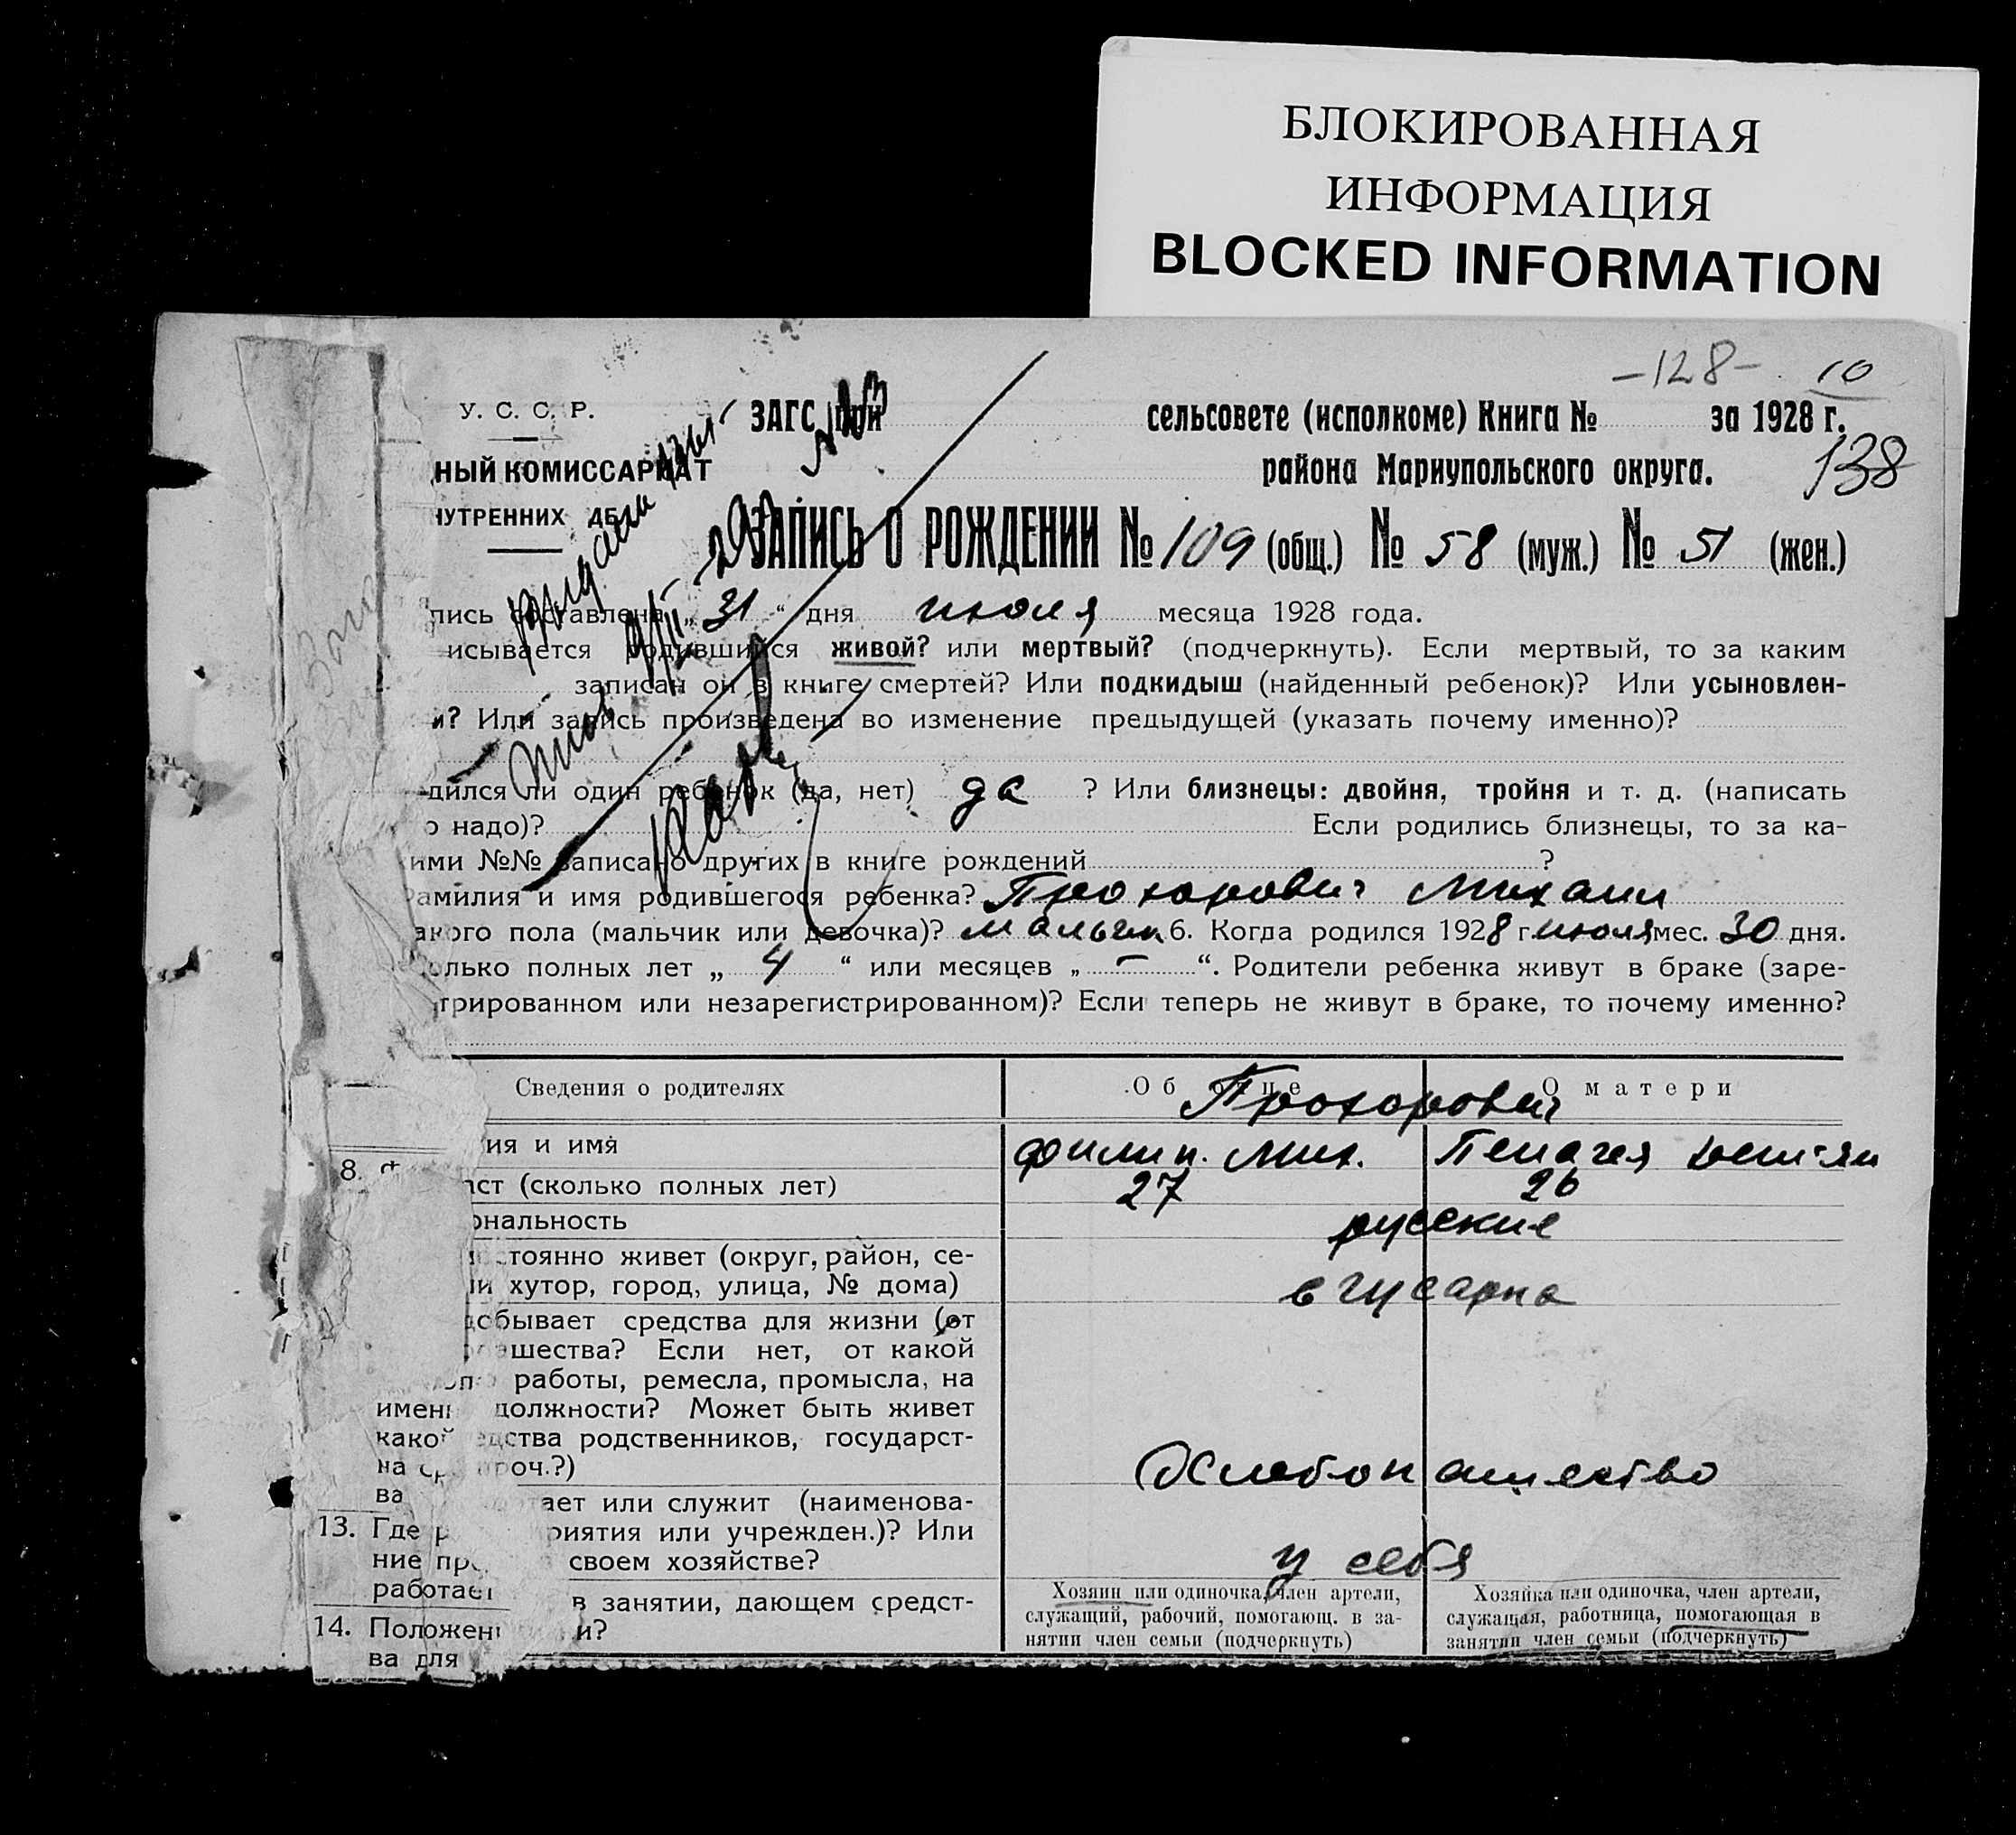 БЛОКИРОВАННАЯ
ИНФОРМАЦИЯ
BLOCKED INFORMATION
-128- 10
У. С. С. Р. ЗАГС при сельсовете (исполкоме) Книга № за 1928 г.
138
НЫЙ КОМИССАРИАТ района Мариупольского округа.
НУТРЕННИХ ДЕ
ЗАПИСЬ О РОЖДЕНИИ № 109 (общ.) № 58 (муж.) № 51 (жен.)
пись составлена „ 31 “ дня июля месяца 1928 года.
исывается родившийся живой? или мертвый? (подчеркнуть). Если мертвый, то за каким
записан он в книге смертей? Или подкидыш (найденный ребенок)? Или усыновлен-
и? Или запись произведена во изменение предыдущей (указать почему именно)?
дился ли один ребенок (да, нет) да ? Или близнецы: двойня, тройня и т. д. (написать
о надо)? Если родились близнецы, то за ка-
ими №№ записано других в книге рождений ?
амилия и имя родившегося ребенка? Прохорович Михаил
акого пола (мальчик или девочка)? мальчик 6. Когда родился 1928 г. июля мес. 30 дня.
олько полных лет „ 4 “ или месяцев „ — “. Родители ребенка живут в браке (заре-
трированном или незарегистрированном)? Если теперь не живут в браке, то почему именно?
Сведения о родителях Об отце О матери
Прохорович
8. Ф ия и имя Филип. Мих. Пелагея
аст (сколько полных лет) 27 26
ональность русские
стоянно живет (округ, район, се-
ли хутор, город, улица, № дома)
добывает средства для жизни (от
ашества? Если нет, от какой
работы, ремесла, промысла, на
имен должности? Может быть живет
какой едства родственников, государст-
на ср проч.?) Хлебопашество
ва
ает или служит (наименова-
13. Где р риятия или учрежден.)? Или
ние пр своем хозяйстве? у себя
работает
в занятии, дающем средст-
14. Положен и?
ва для
Хозяин или одиночка, член артели,
служащий, рабочий, помогающ. в за-
нятии член семьи (подчеркнуть)
Хозяйка или одиночка, член артели,
служащая, работница, помогающая в
занятии член семьи (подчеркнуть)